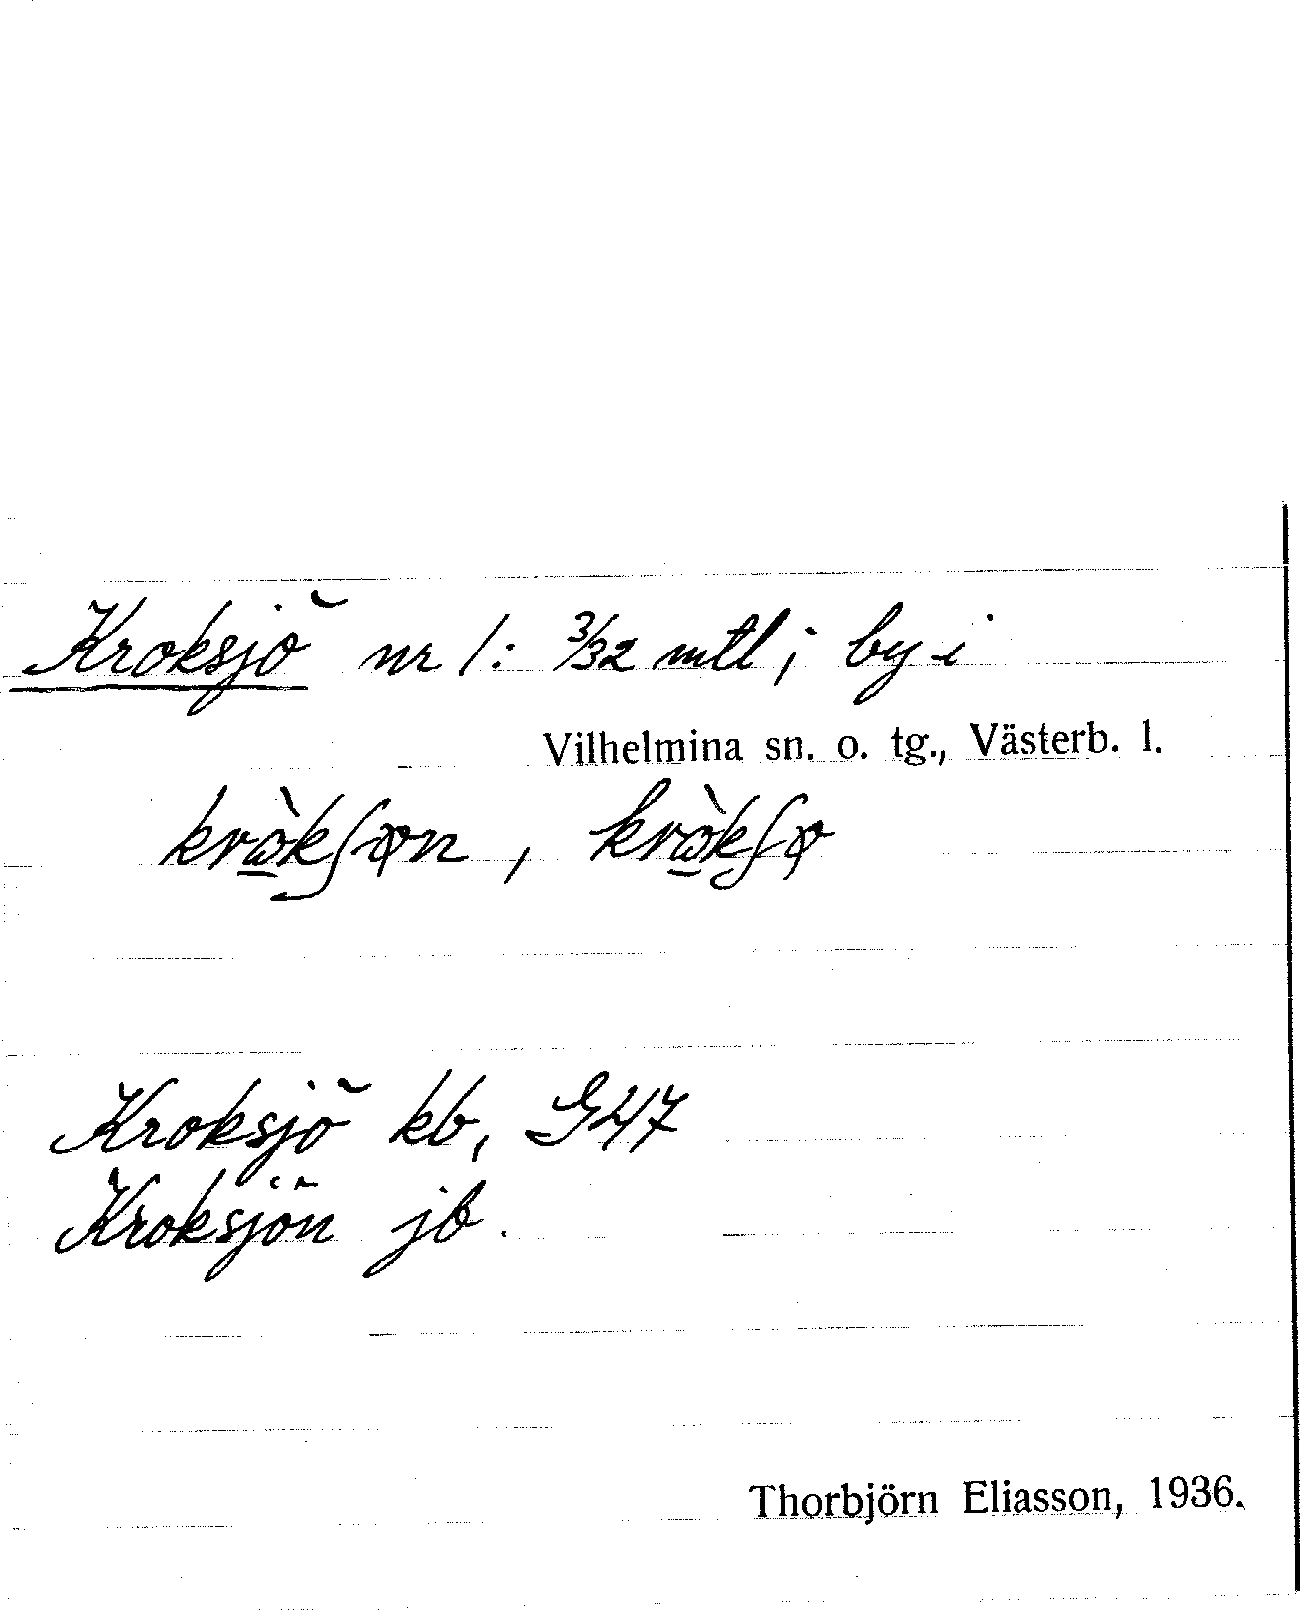 Kroksjö nr 1: 3/32 mtl; by i
Vilhelmina sn. o. tg., Västerb. l.
krὼ̱kʃøn, krὼ̱kʃø
Kroksjö kb, G47
Kroksjön jb.
Thorbjörn Eliasson, 1936.